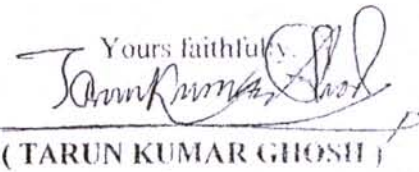 Yours faithfully,
Tarun Kumar Ghosh
( TARUN KUMAR GHOSH )